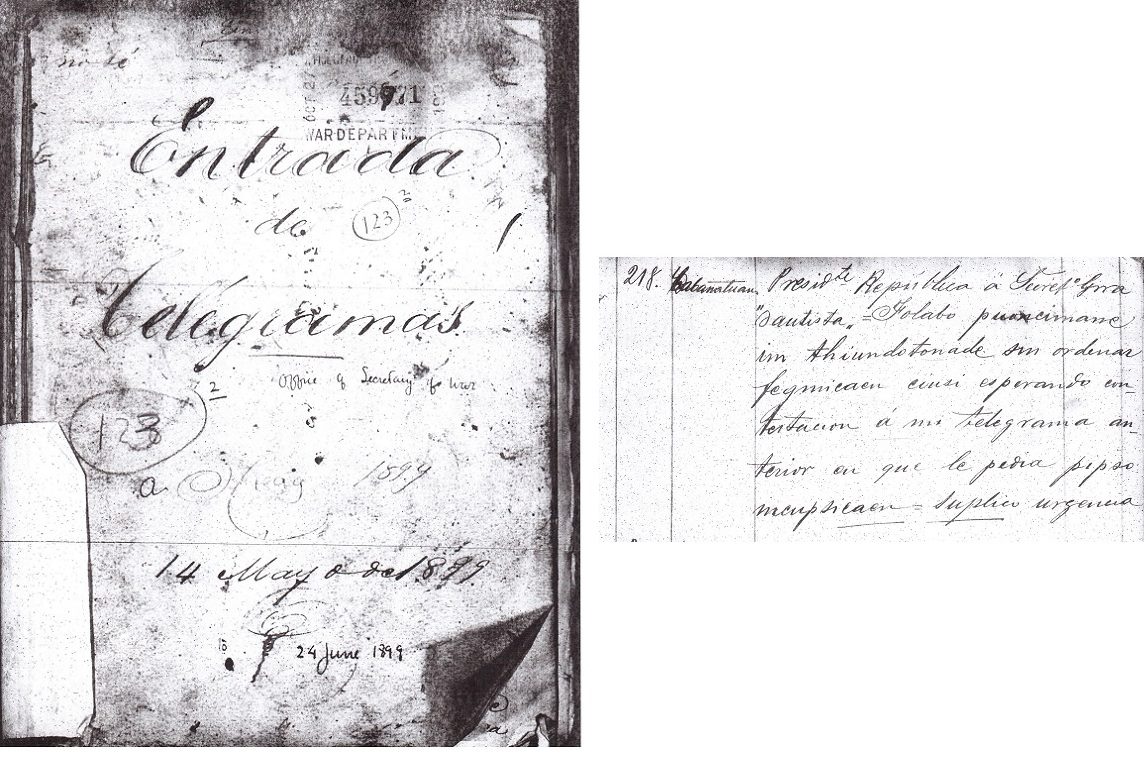 no sé
459671
OCT 2
WAR DEPARTM
Entrada
de 123 2
Telegramas
Office of Secretary of War
123 2
a 1899
14 Mayo de 1899
24 June 1899
218. Cabanatuan Presidte República á Guerra
"Bautista" = Folabo
im thiundotonade sin ordenar
fegmicaen cinsi esperando con-
testacion á mi telegrama an-
terior en que le pedia pipso
mcupsicaen = suplico urgencia